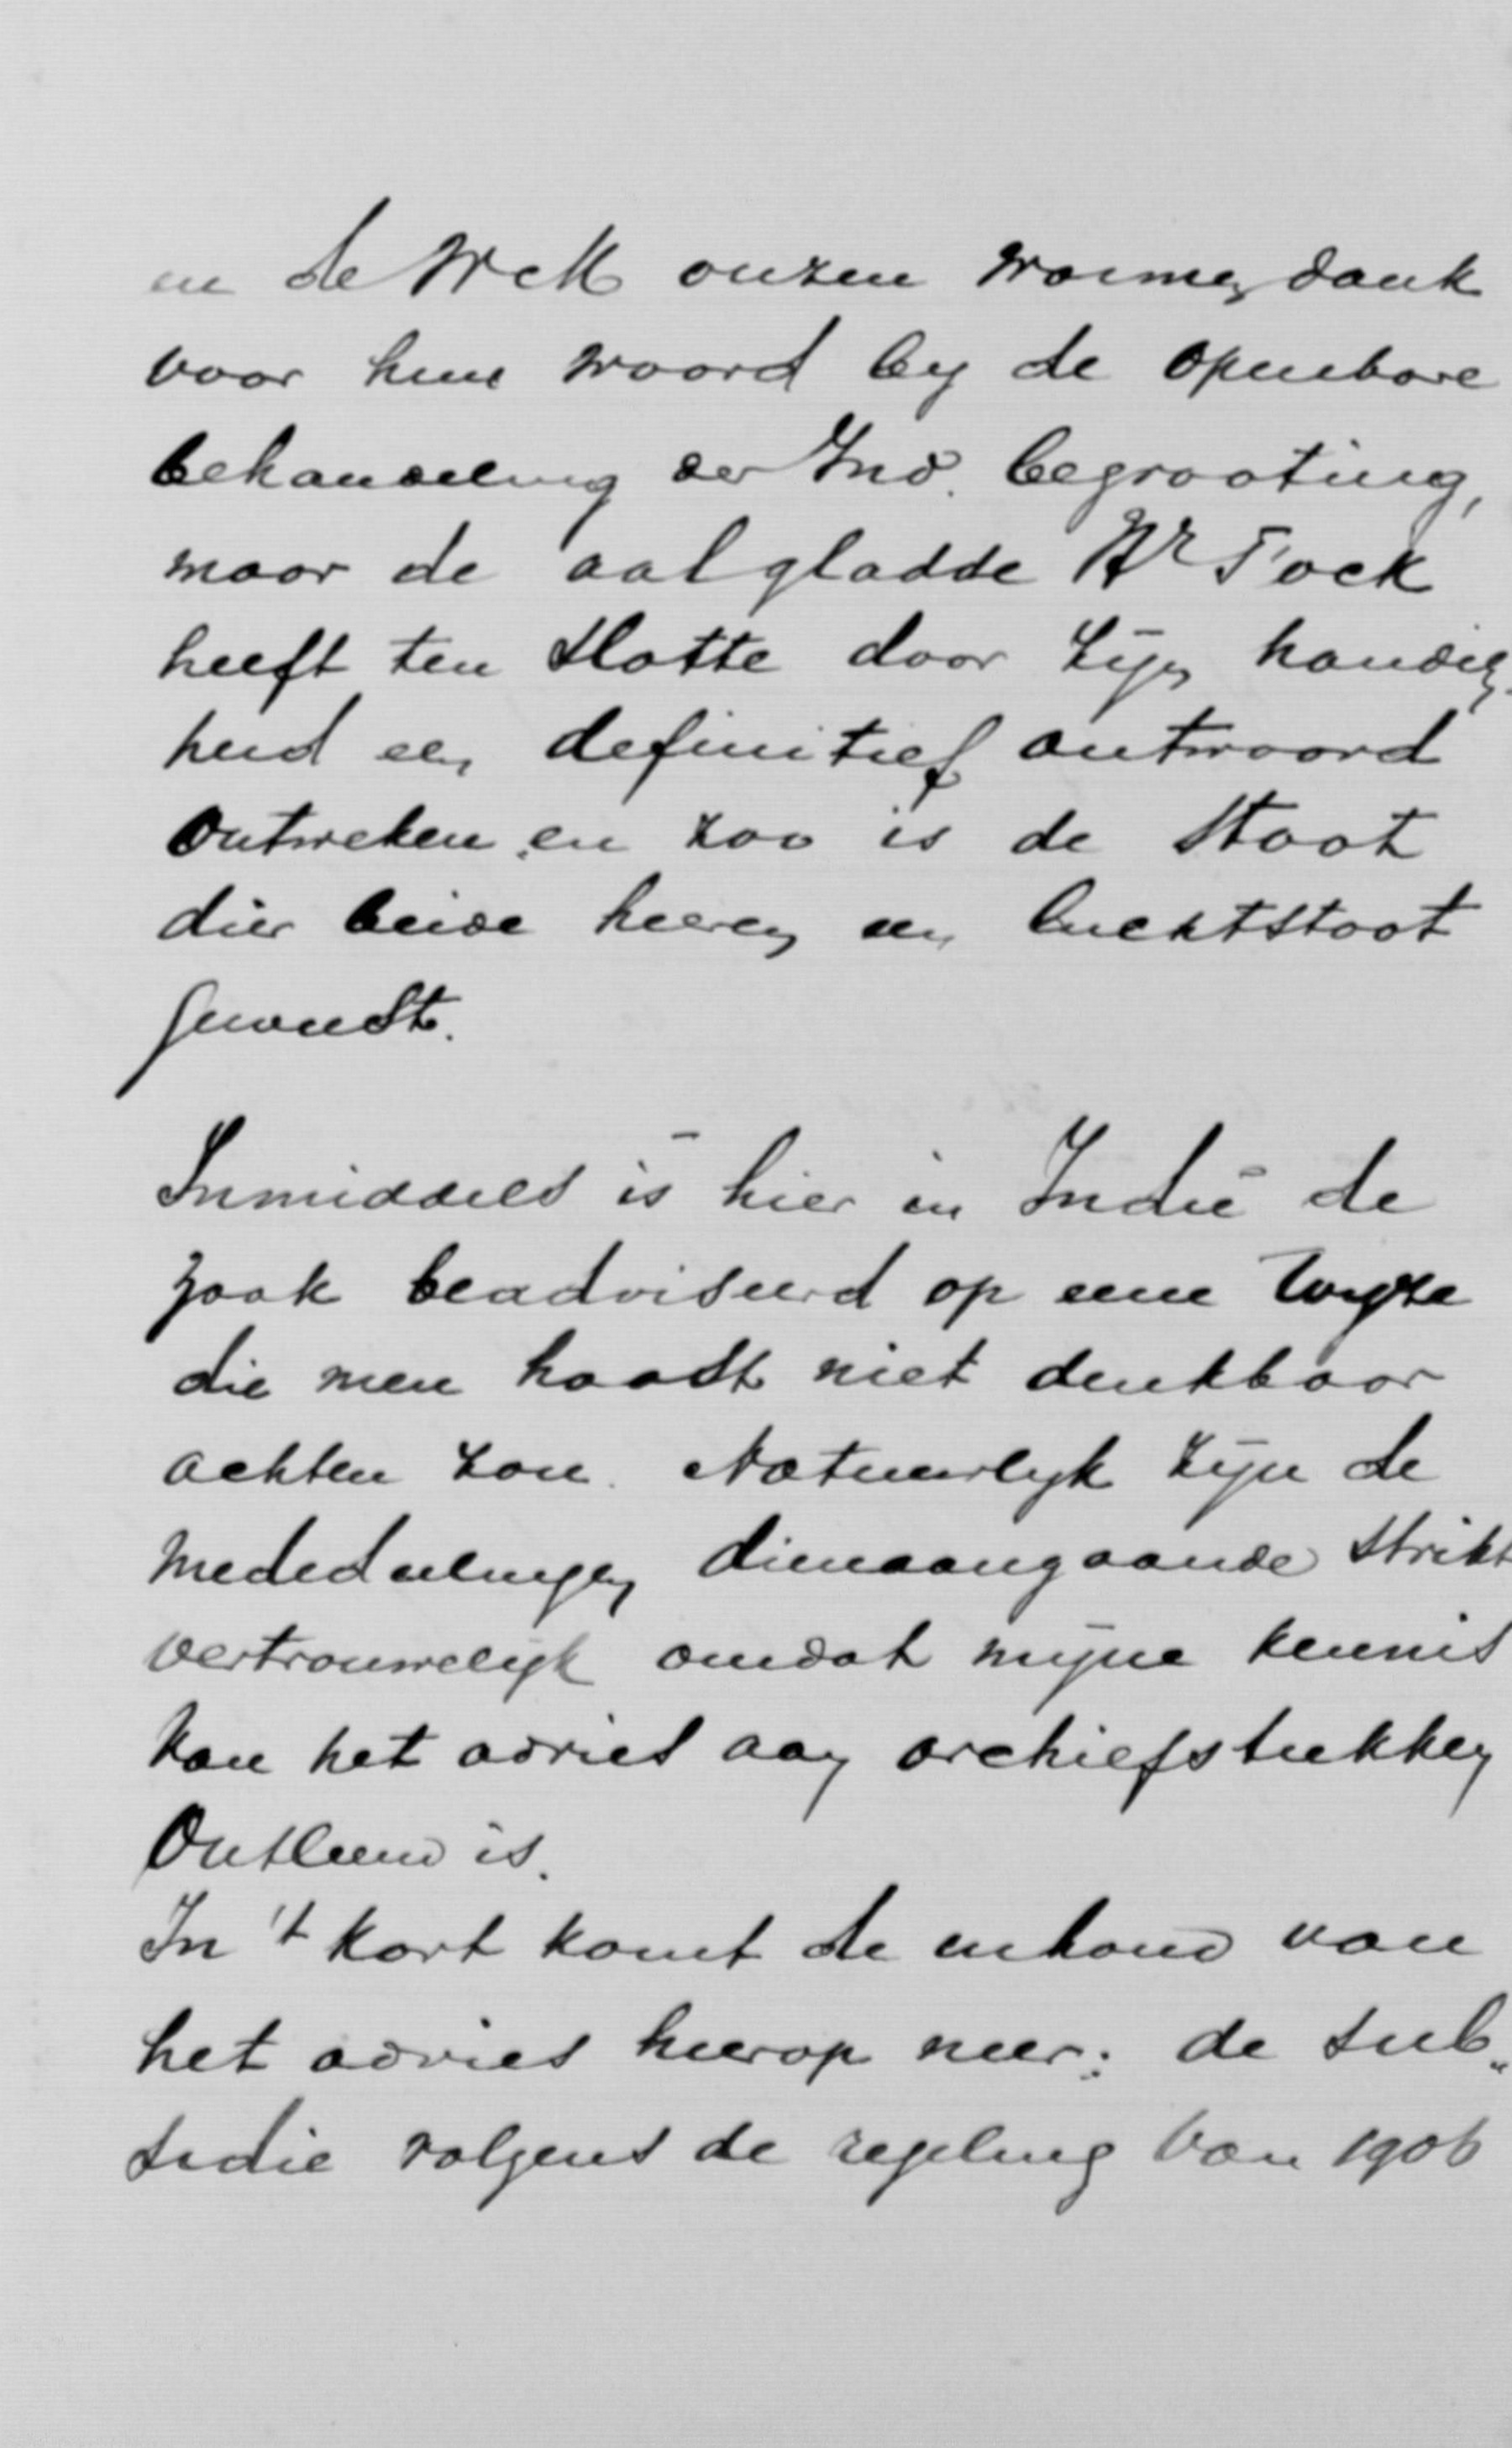 en de Wek onzen warmen dank
voor hun woord bij de openbare
behandeling der Ind. begrooting,
maar de aalgladde Hr Fock
heeft ten slotte door zijn handig-
heid een definitief antwoord
ontweken en zoo is de stoot
dier beide heeren een luchtstoot
geweest.
Inmiddels is hier in Indië de
zaak beadviseerd op eene wijze
die men haast niet denkbaar
achten zou. Natuurlijk zijn de
mededeelingen dienaangaande strikt
vertrouwelijk omdat mijne kennis
van het advies aan archiefstukken
ontleend is.
In 't kort komt de inhoud van
het advies hierop neer: de sub„
sidie volgens de regeling van 1906